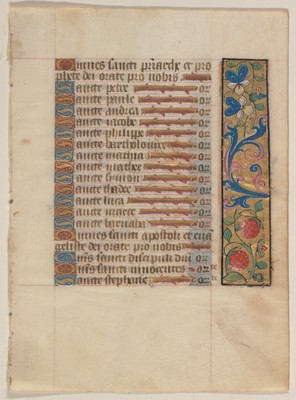 Omnes sancti priarche et pro
phete dei orate pro nobis
Sancte petre or
Sancte paule or
Sancte andrea or
Sancte iacobe or
Sancte philippe or
Sancte bartholomee or
Sancte mathia or
Sancte mathee or
Sancte symon or
Sancte thadee or
Sancte luca or
Sancte marce or
Sancte barnaba or
Omnes sancti apostoli et euã
geliste dei orate pro nobis
Oms sancti discipuli dni or
Oms sancti innocentes or
Sancte stephane or